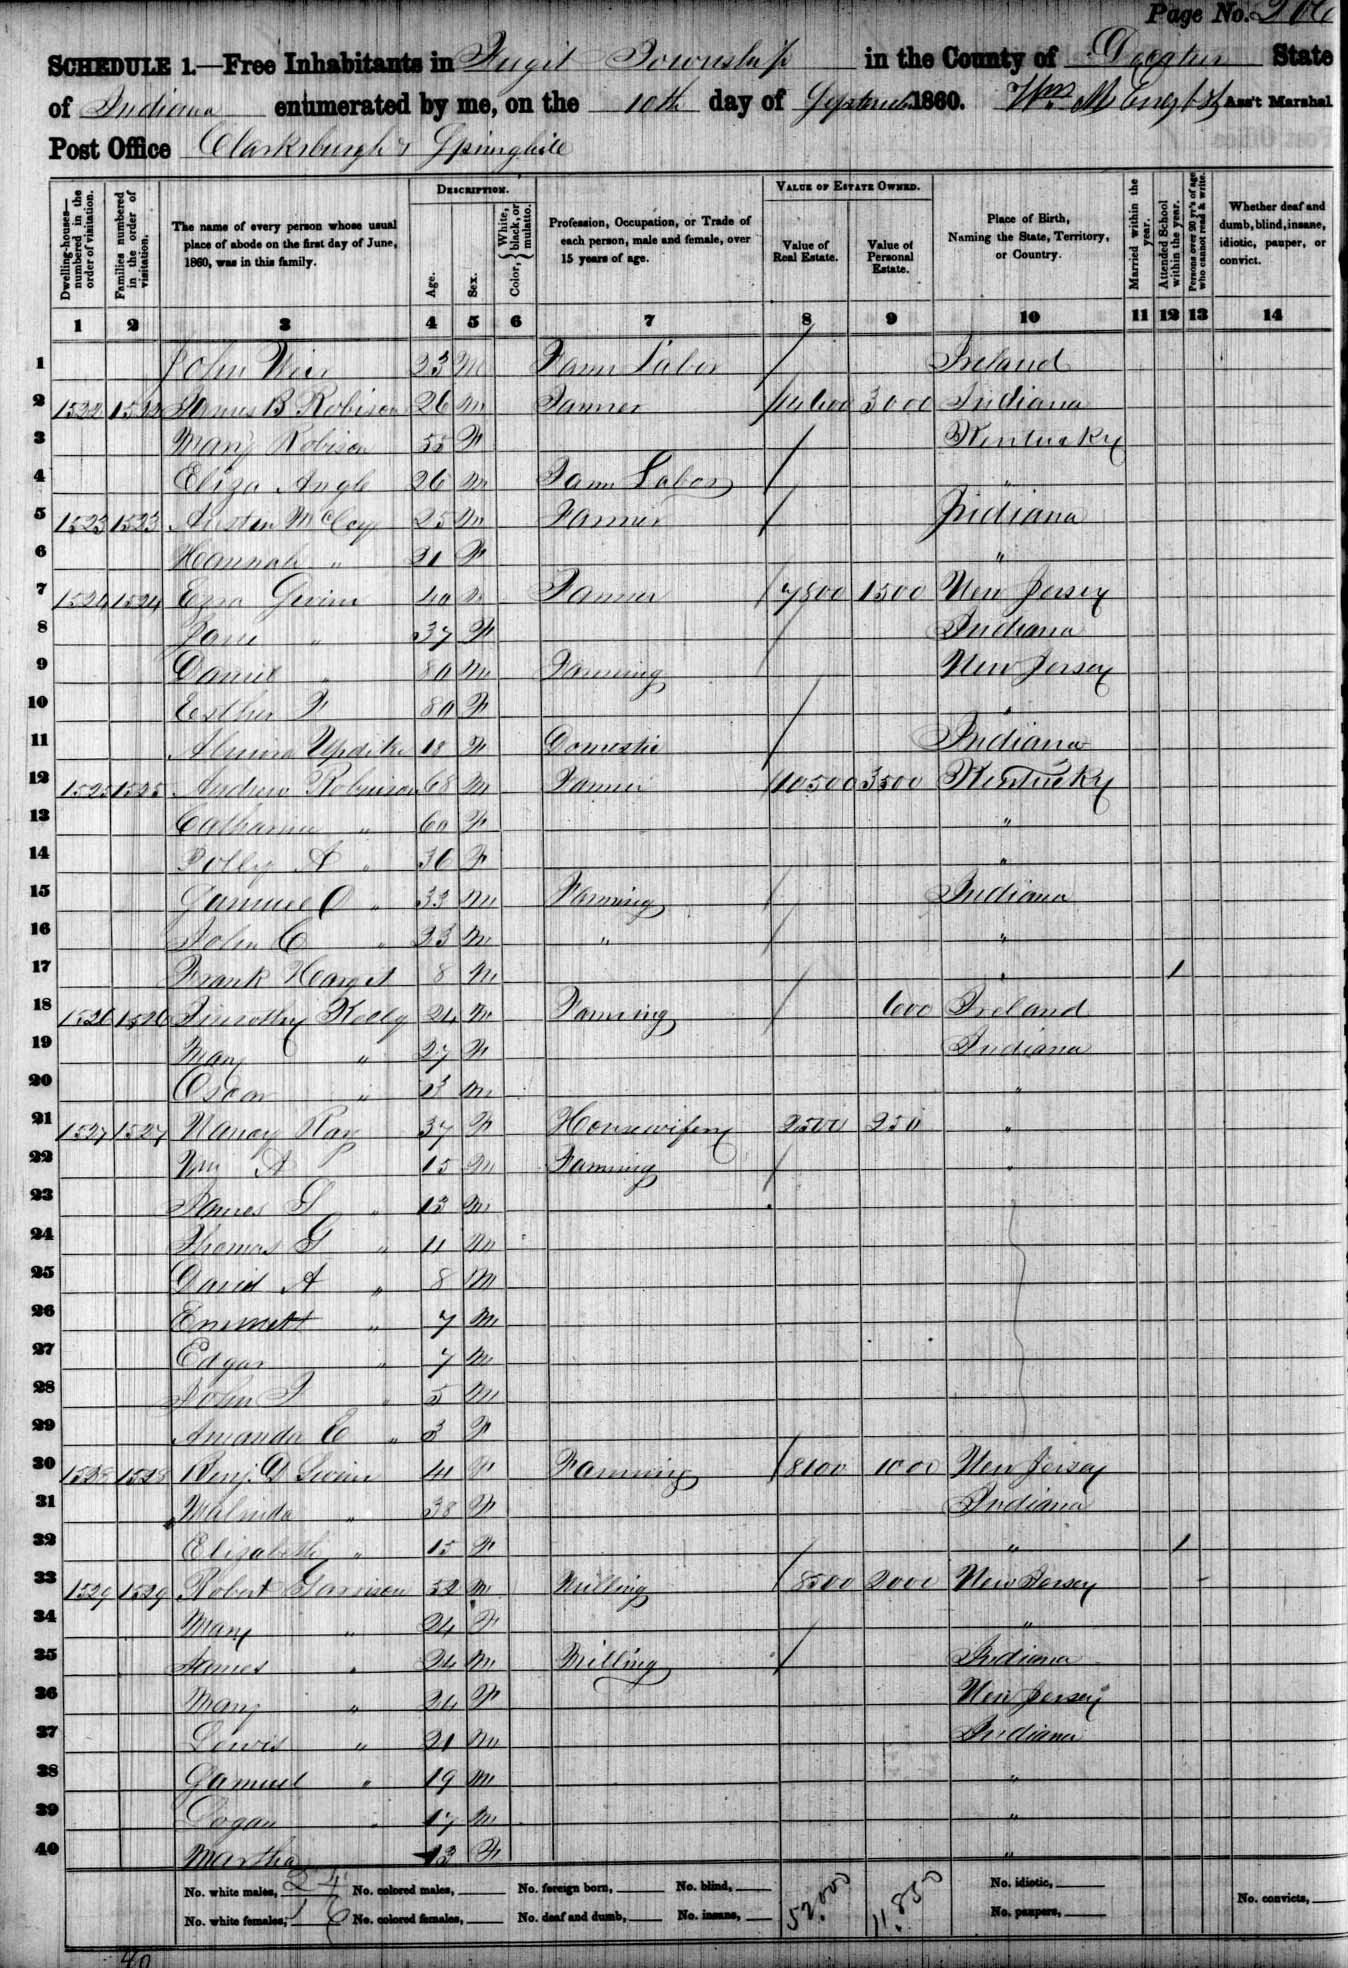 Page No. 206
SCHEDULE 1.—Free Inhabitants in Fugit Township in the County of Decatur State
of Indiana enumerated by me, on the 10th day of September 1860. Wm M Ass't Marshal
Post Office Clarksburgh & Springhill
DESCRIPTION. VALUE OF ESTATE OWNED.
Dwelling-houses—numbered in the order of visitation. Families numbered in the order of visitation. The name of every person whose usual place of abode on the first day of June, 1860, was in this family. Age. Sex. Color, { White, black, or mulatto. Profession, Occupation, or Trade of each person, male and female, over 15 years of age. Value of Real Estate. Value of Personal Estate. Place of Birth, Naming the State, Territory, or Country. Married within the year. Attended School within the year. Persons over 20 y'rs of age who cannot read & write. Whether deaf and dumb, blind, insane, idiotic, pauper, or convict.
1 2 3 4 5 6 7 8 9 10 11 12 13 14
1 John 23 M Farm Labor / Ireland
2 1522 1522 James B Robison 26 M Farmer 3000 Indiana
3 Mary Robison 55 F / Kentucky
4 Eliza Angle 26 M Farm Labor / "
5 1523 1523 Austin McCoy 25 M Farmer / Indiana
6 Hannah " 21 F "
7 1524 1524 Ezra 40 M Farmer / 7800 1500 New Jersey
8 Jane " 37 F / Indiana
9 Daniel " 80 M Farming New Jersey
10 Esther F 80 F / "
11 Updike 18 F Domestic / Indiana
12 1525 1525 Andrew Robinson 68 M Farmer / 10500 3500 Kentucky
13 Catharine " 60 F "
14 Polly A " 36 F "
15 Samuel O " 33 M Farming / Indiana
16 John C " 23 M " / "
17 Frank 8 M / " 1
18 1526 1526 Timothy Kelly 24 M Farming / Ireland
19 Mary " 27 F Indiana
20 Oscar " M "
21 1527 1527 Nancy Ray 37 F Housewifery 2500 250 "
22 Wm A 15 M Farming / "
23 James S " 13 M
24 Thomas G " 11 M
25 David A " 8 M
26 Emmett " 7 M
27 Edgar " 7 M
28 John " 5 M
29 Amanda E " 3 F
30 1528 1528 Benj. D 41 F Farming / 8100 1000 New Jersey
31 Malinda " 38 F Indiana
32 Elizabeth " 15 F / " 1
33 1529 1529 Robert Garrison 52 M Milling / 8500 2000 New Jersey
34 Mary " F / "
35 James " 24 M Milling / Indiana
36 Mary " 24 F New Jersey
37 Lewis " 21 M Indiana
38 Samuel " 19 M "
39 Logan " 17 M "
40 Martha 13 F "
No. white males, 24 No. colored males, No. foreign born, No. blind, 52,000 11,850 No. idiotic,
No. white females, 16 No. colored females, No. deaf and dumb, No. insane, No. paupers, No. convicts,
40